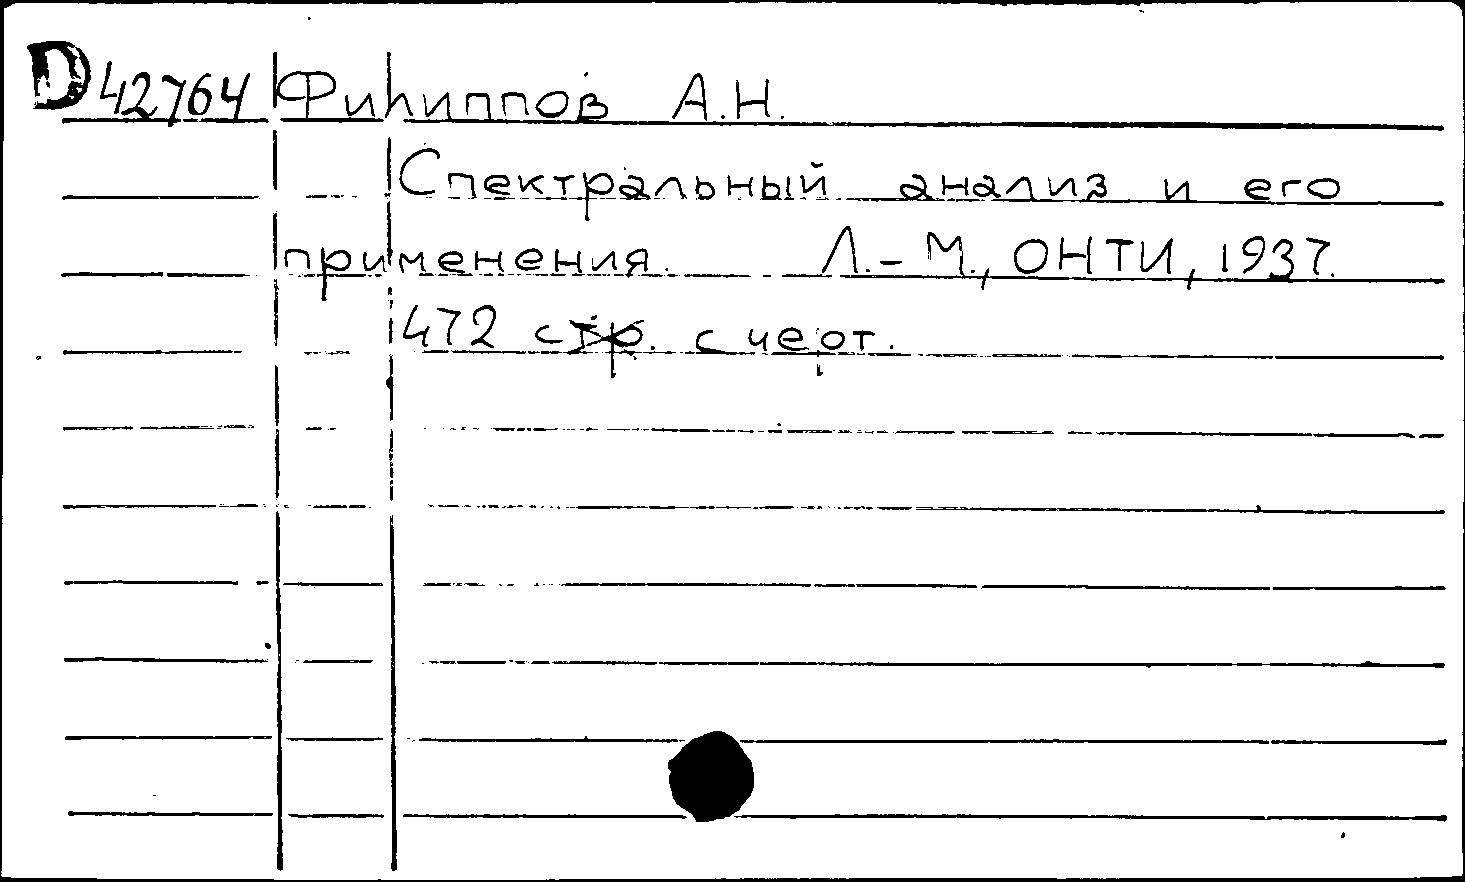 D 42764 Филиппов А.Н.
Спектральный анализ и его
применения. Л.-М., ОНТИ, 1937.
472 стр. с черт.